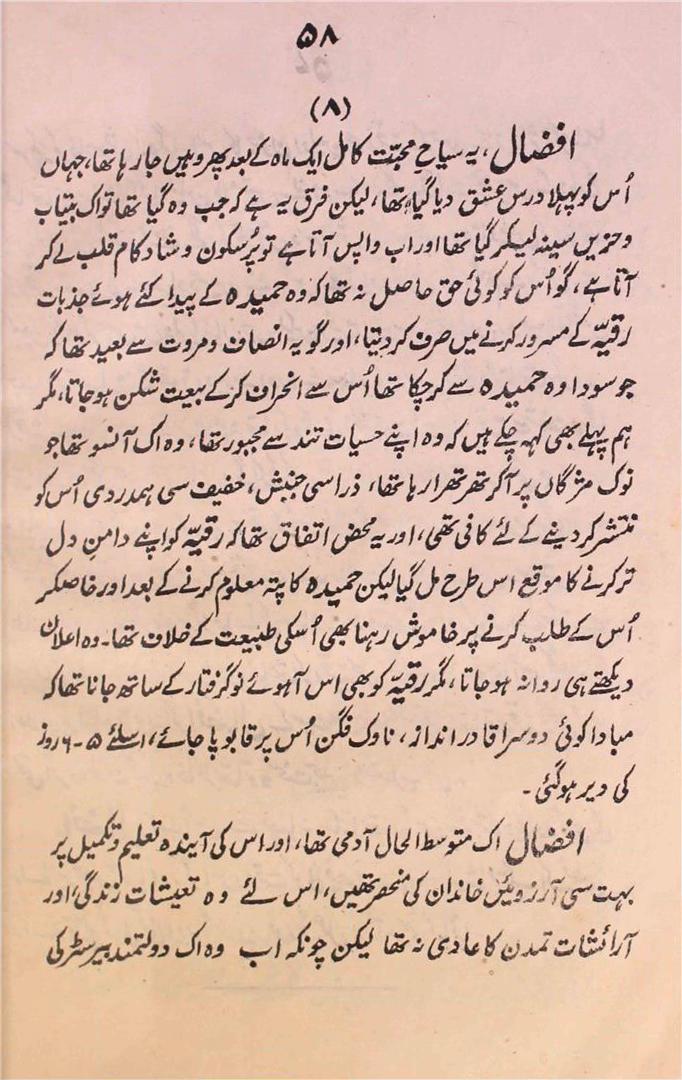 ۵۸
(۸)
افضال، یہ سیاحِ محبت کامل ایک ماہ کے بعد پھر وہیں جا رہا تھا، جہاں
اُس کو پہلا درس عشق دیا گیا تھا، لیکن فرق یہ ہے کہ جب وہ گیا تھا تو اک بیتاب
و حزیں سینہ لیکر گیا تھا اور اب واپس آتا ہے تو پُر سکون و شاد کام قلب لے کر
آتا ہے، گو اُس کو کوئی حق حاصل نہ تھا کہ وہ حمیدہ کے پیدا کئے ہوئے جذبات
رقیّہ کے مسرور کرنے میں صرف کر دیتا، اور گو یہ انصاف و مروت سے بعید تھا کہ
جو سودا وہ حمیدہ سے کر چکا تھا اُس سے انحراف کر کے بیعت شکن ہو جاتا، مگر
ہم پہلے بھی کہہ چکے ہیں کہ وہ اپنے حسیات تند سے مجبور تھا، وہ اک آنسو تھا جو
نوک مژگاں پر آکر تھر تھرا رہا تھا، ذرا سی جنبش، خفیف سی ہمدردی اُس کو
منتشر کر دینے کے لئے کافی تھی، اور یہ محض اتفاق تھا کہ رقیّہ کو اپنے دامنِ دل
تر کرنے کا موقع اس طرح مل گیا لیکن حمیدہ کا پتہ معلوم کرنے کے بعد اور خاصکر
اُس کے طلب کرنے پر خاموش رہنا بھی اُسکی طبیعت کے خلاف تھا۔ وہ اعلان
دیکھتے ہی روانہ ہو جاتا، مگر رقیّہ کو بھی اس آہوئے نو گرفتار کے ساتھ جانا تھا کہ
مبادا کوئی دوسرا قادر انداز، ناوک فگن اُس پر قابو پا جائے، اسلئے ۵-۶ روز
کی دیر ہو گئی۔
افضال اک متوسط الحال آدمی تھا، اور اس کی آیندہ تعلیم و تکمیل پر
بہت سی آرزوئیں خاندان کی منحصر تھیں، اس لئے وہ تعیشات زندگی، اور
آرائشات تمدن کا عادی نہ تھا لیکن چونکہ اب وہ اک دولتمند بیرسٹر کی